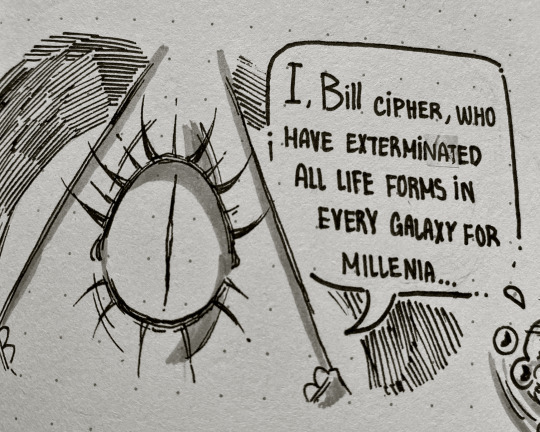 I, Bill CiPHER, WHO
HAVE EXTERMiNATED
ALL LIFE FORMS iN
EVERY GALAXY FOR
MILLENIA...